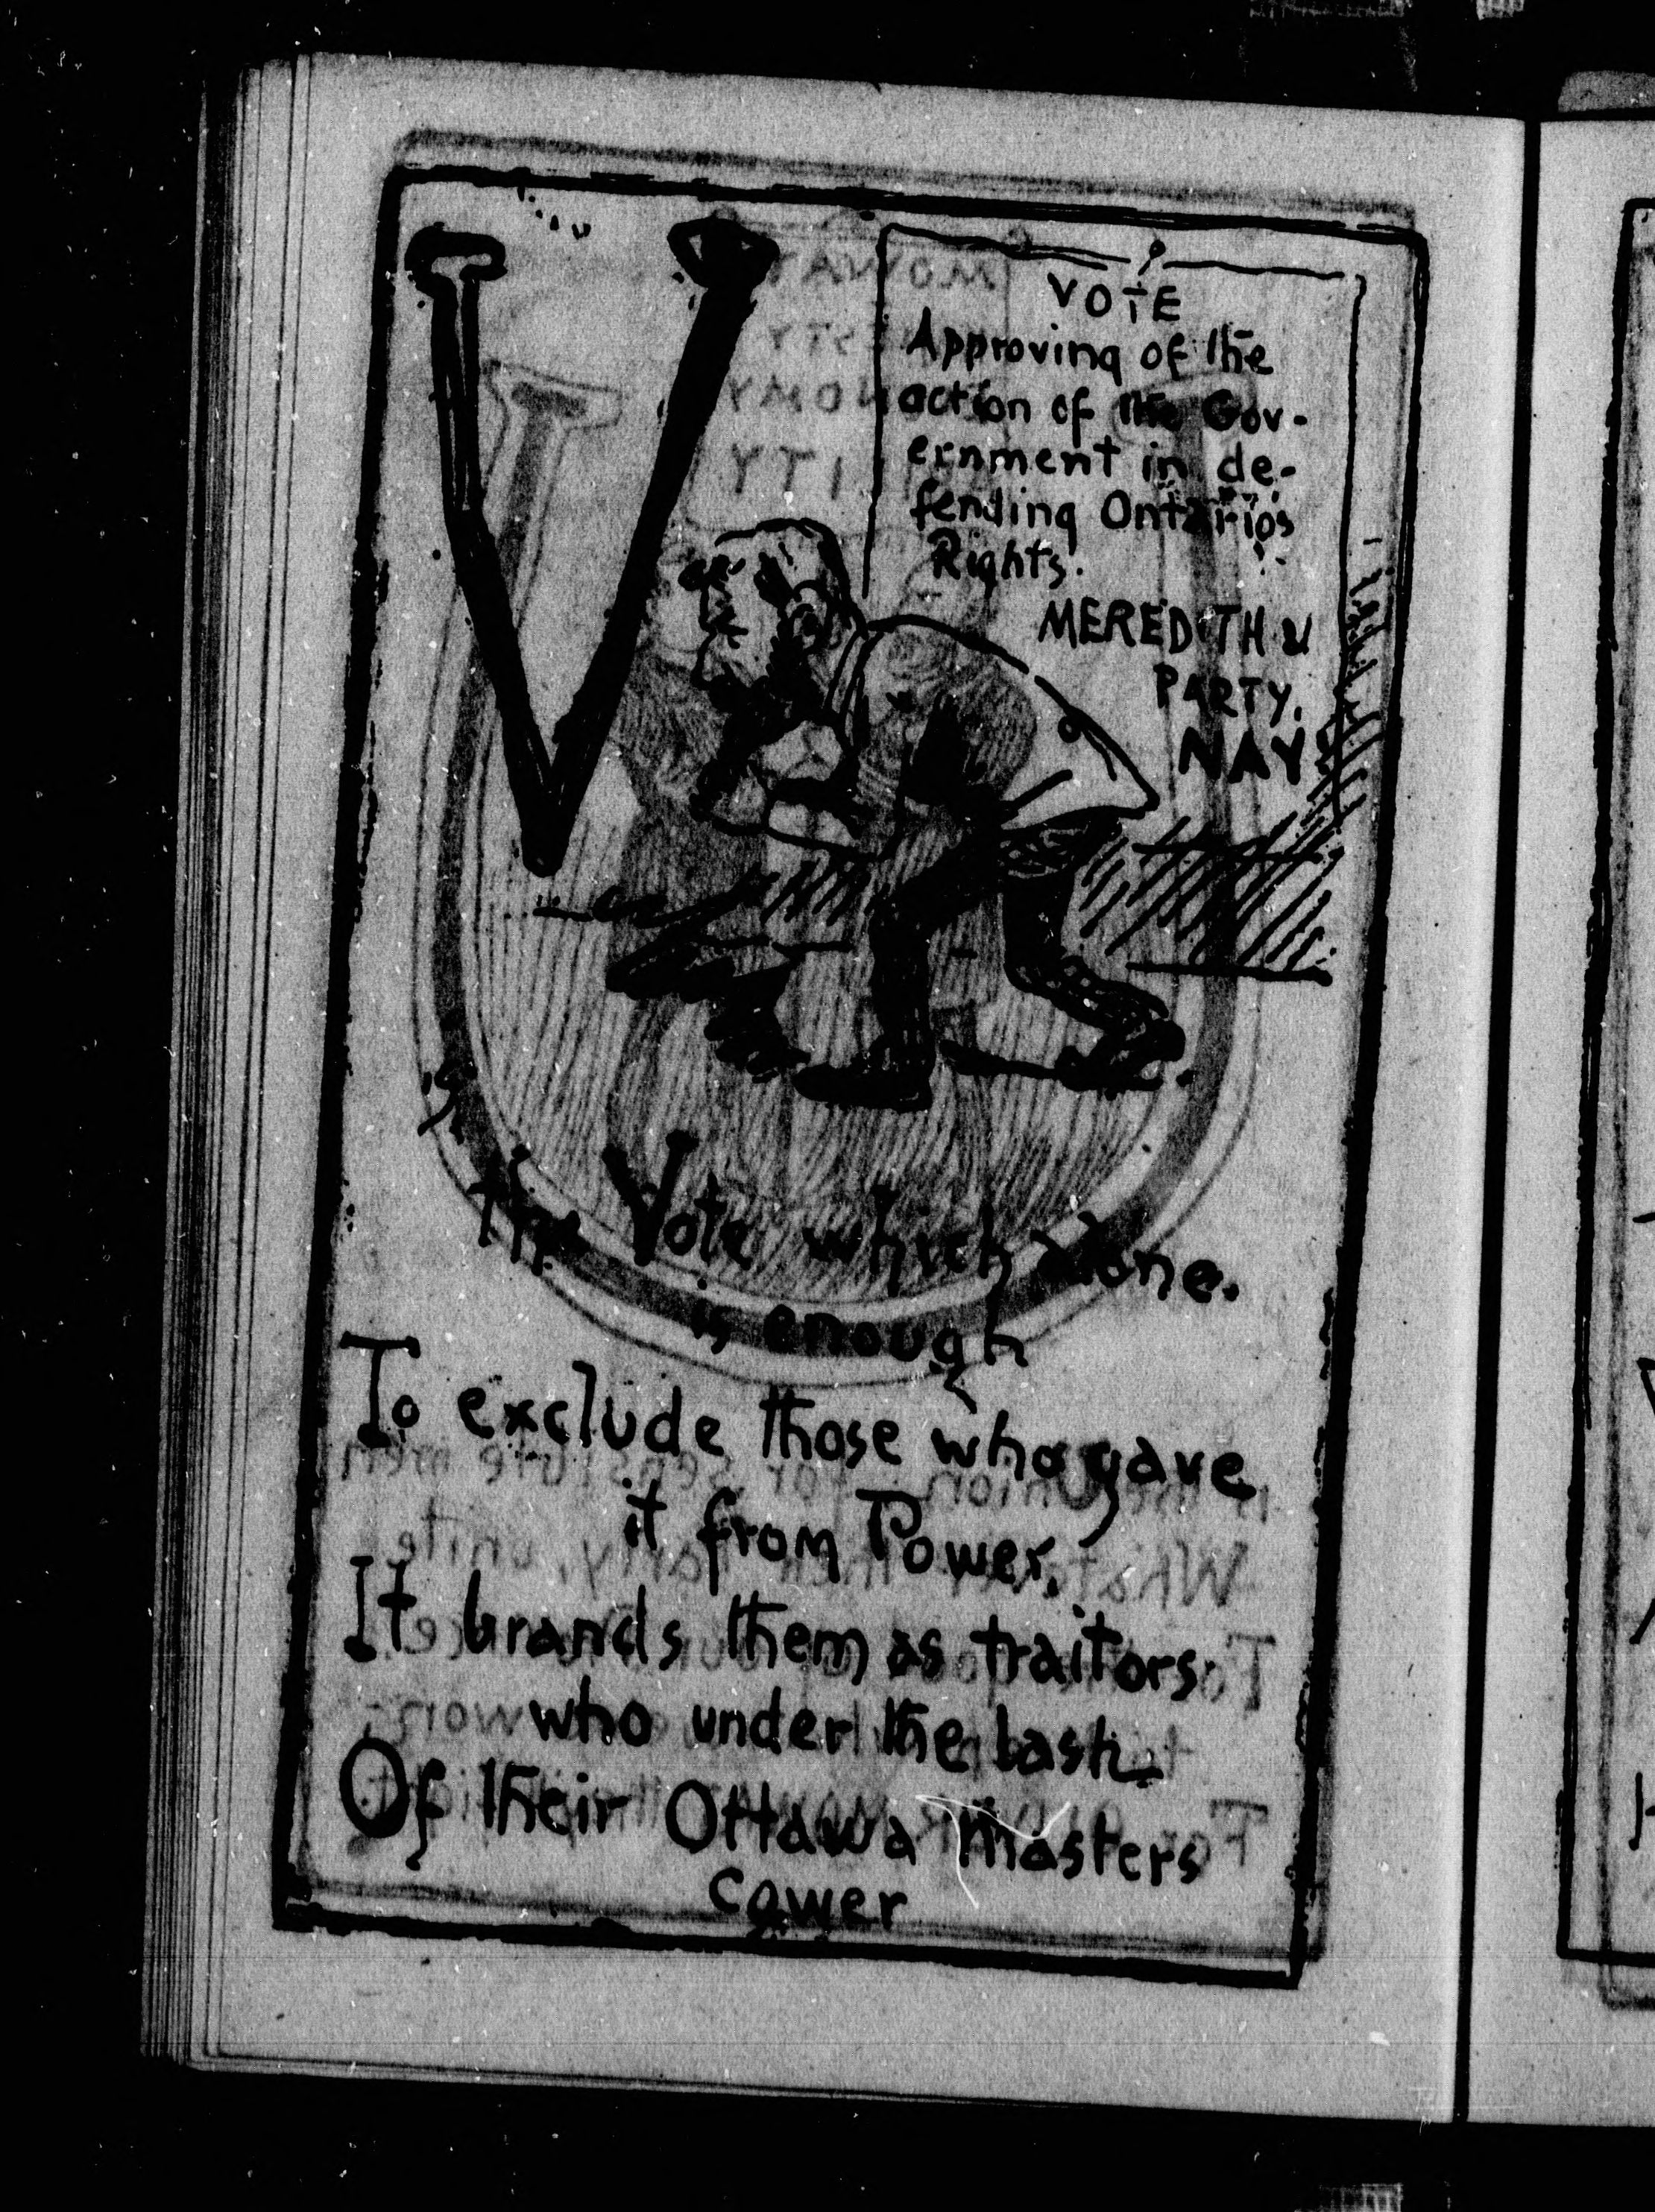 V
VOTE
Approving of the
action of the Gov-
ernment in de-
fending Ontario's
Rights.
MEREDITH &
PARTY.
NAY
is
the Vote which alone.
is enough
To exclude those who gave
it from Power.
It brands them as traitors
who under the lash
Of their Ottawa masters
cower